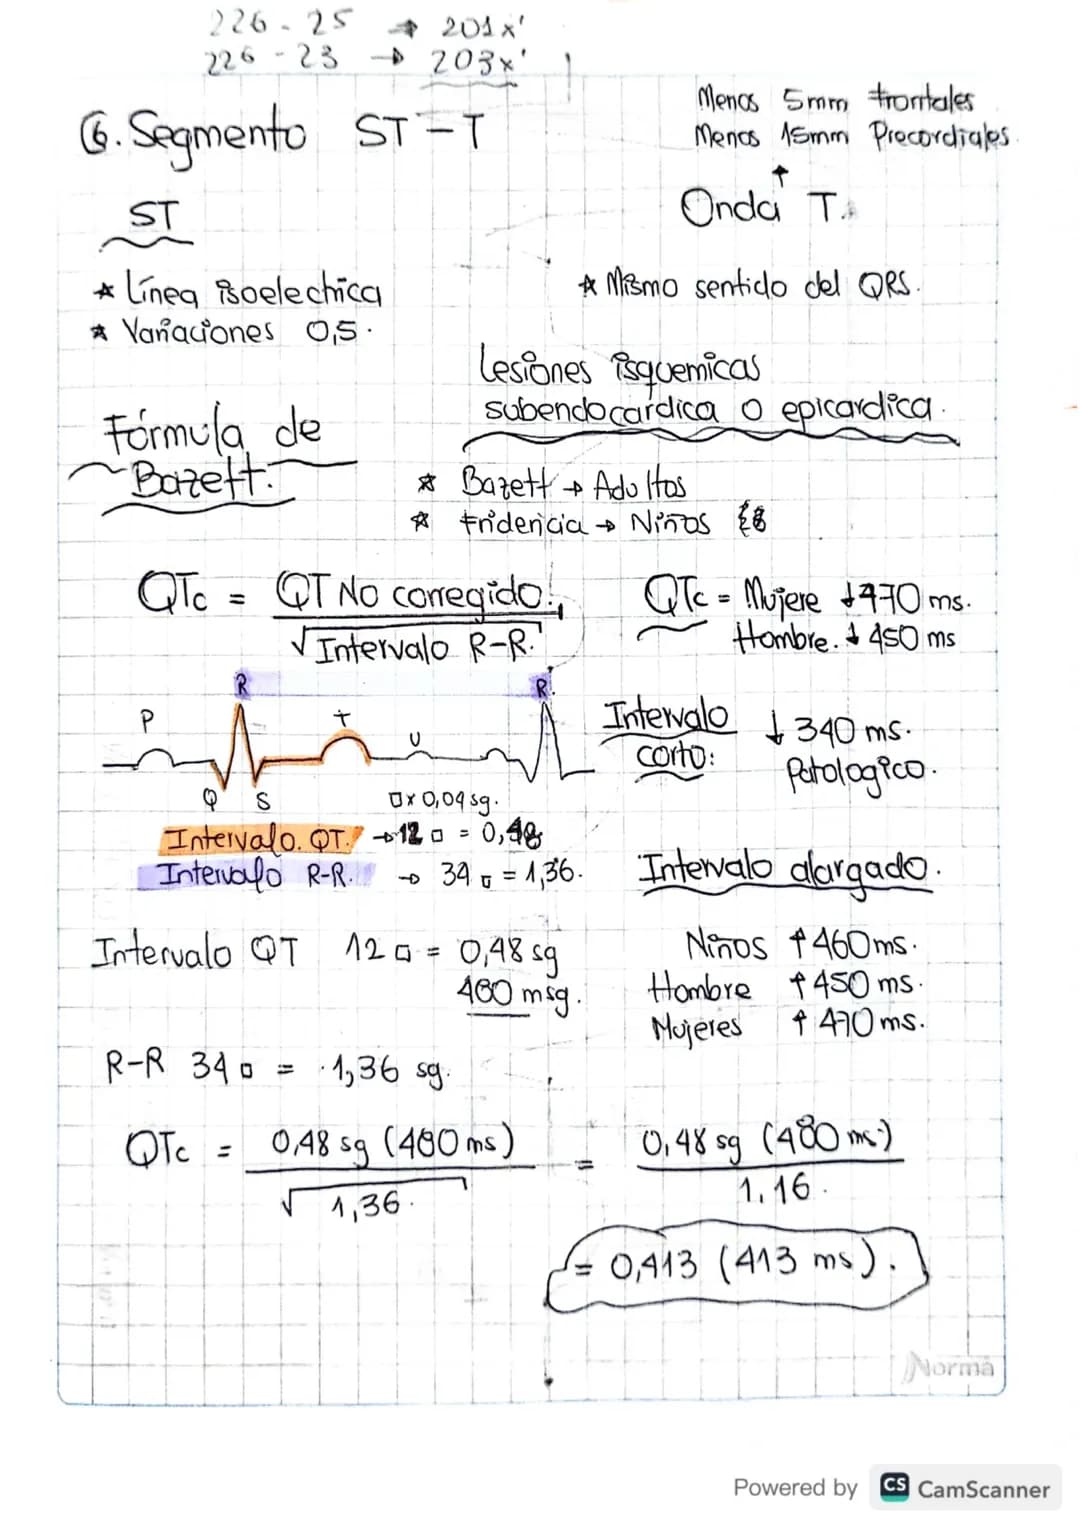 226 - 25 → 201x'
226 - 23 → 203x'
Menos 5mm frontales
Menos 15mm Precordiales.
↑
6. Segmento ST-T
Onda T.
ST
* Línea isoelectrica
* Variaciones 0,5.
* Mismo sentido del QRS.
Lesiones isquemicas
subendocardica o epicardica.
Fórmula de
Bazett:
* Bazett → Adultos
* Fridericia → Niños
QTc = QT No corregido.
√Intervalo R-R.
QTc = Mujere ↓470 ms.
Hombre. ↓ 450 ms
R R.
P T U
Q S
Intervalo corto: ↓ 340 ms.
Patologico.
□x 0,04 sg.
Intervalo. QT. → 12 □ = 0,48
Intervalo R-R. → 34 □ = 1,36.
Intervalo alargado.
Niños ↑460ms.
Hombre ↑450 ms.
Mujeres ↑ 470 ms.
Intervalo QT 12 □ = 0,48 sg
480 msg.
R-R 34 □ = 1,36 sg.
QTc = 0,48 sg (480 ms) = 0,48 sg (480 ms)
√1,36. 1,16.
= 0,413 (413 ms).
Norma
Powered by CS CamScanner